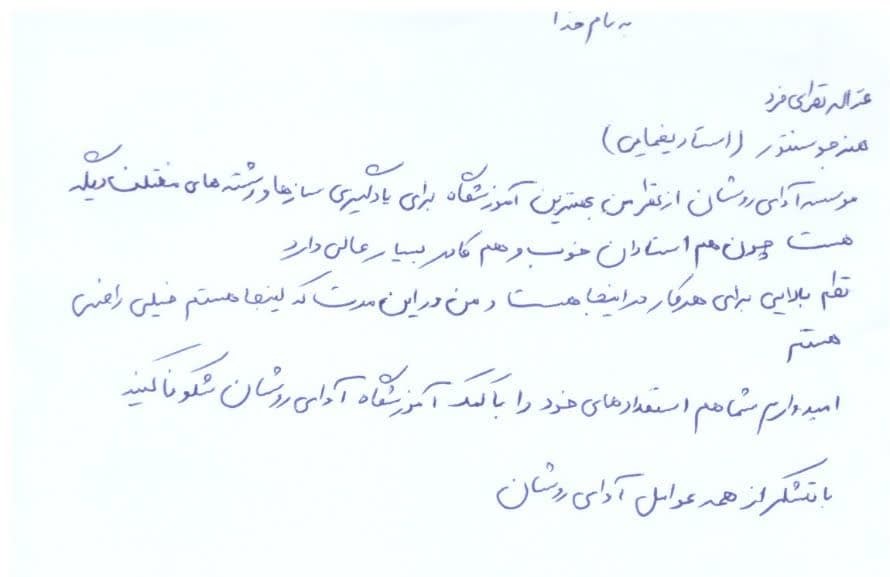 به نام خدا
غزاله نصرای فرد
هنرجو سنتور (استاد یغمایی)
موسسه آوای روشان از نظر من بهترین آموزشگاه برای یادگیری سازها و رشته های مختلف دیگه
هست چون هم استادان خوب و هم کادر بسیار عالی دارد
نظم بالایی برای هر کار در اینجا هست و من در این مدت که اینجا هستم خیلی راضی
هستم
امیدوارم شما هم استعدادهای خود را با کمک آموزشگاه آوای روشان شکوفا کنید
با تشکر از همه عوامل آوای روشان